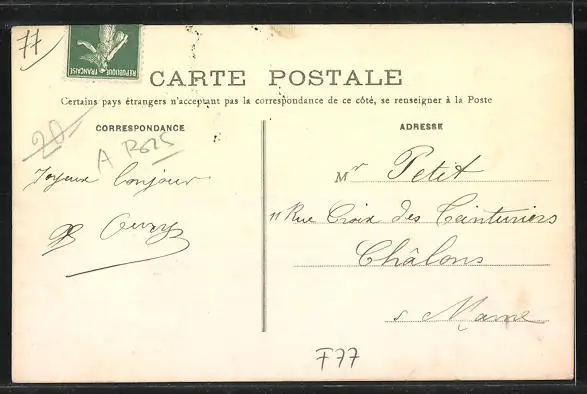 77
RÉPUBLIQUE FRANÇAISE
CARTE POSTALE
Certains pays étrangers n'acceptant pas la correspondance de ce côté, se renseigner à la Poste
CORRESPONDANCE
20
Joyeux bonjour
ADRESSE
Mr Petit
11 Rue Croix des Teinturiers
Châlons
s Marne
F77